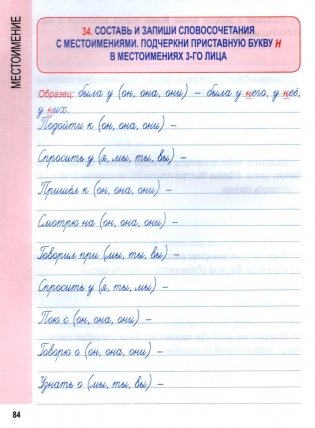 МЕСТОИМЕНИЕ
34. СОСТАВЬ И ЗАПИШИ СЛОВОСОЧЕТАНИЯ
С МЕСТОИМЕНИЯМИ. ПОДЧЕРКНИ ПРИСТАВНУЮ БУКВУ Н
В МЕСТОИМЕНИЯХ 3-ГО ЛИЦА
Образец: была у (он, она, они) – была у него, у неё,
у них.
Подойти к (он, она, они) –
Спросить у (я, мы, ты, вы) –
Пришёл к (он, она, они) –
Смотрю на (он, она, они) –
Говорил при (мы, ты, вы) –
Спросить у (я, ты, мы) –
Пою о (он, она, они) –
Говорю о (он, она, они) –
Узнать о (мы, ты, вы) –
84